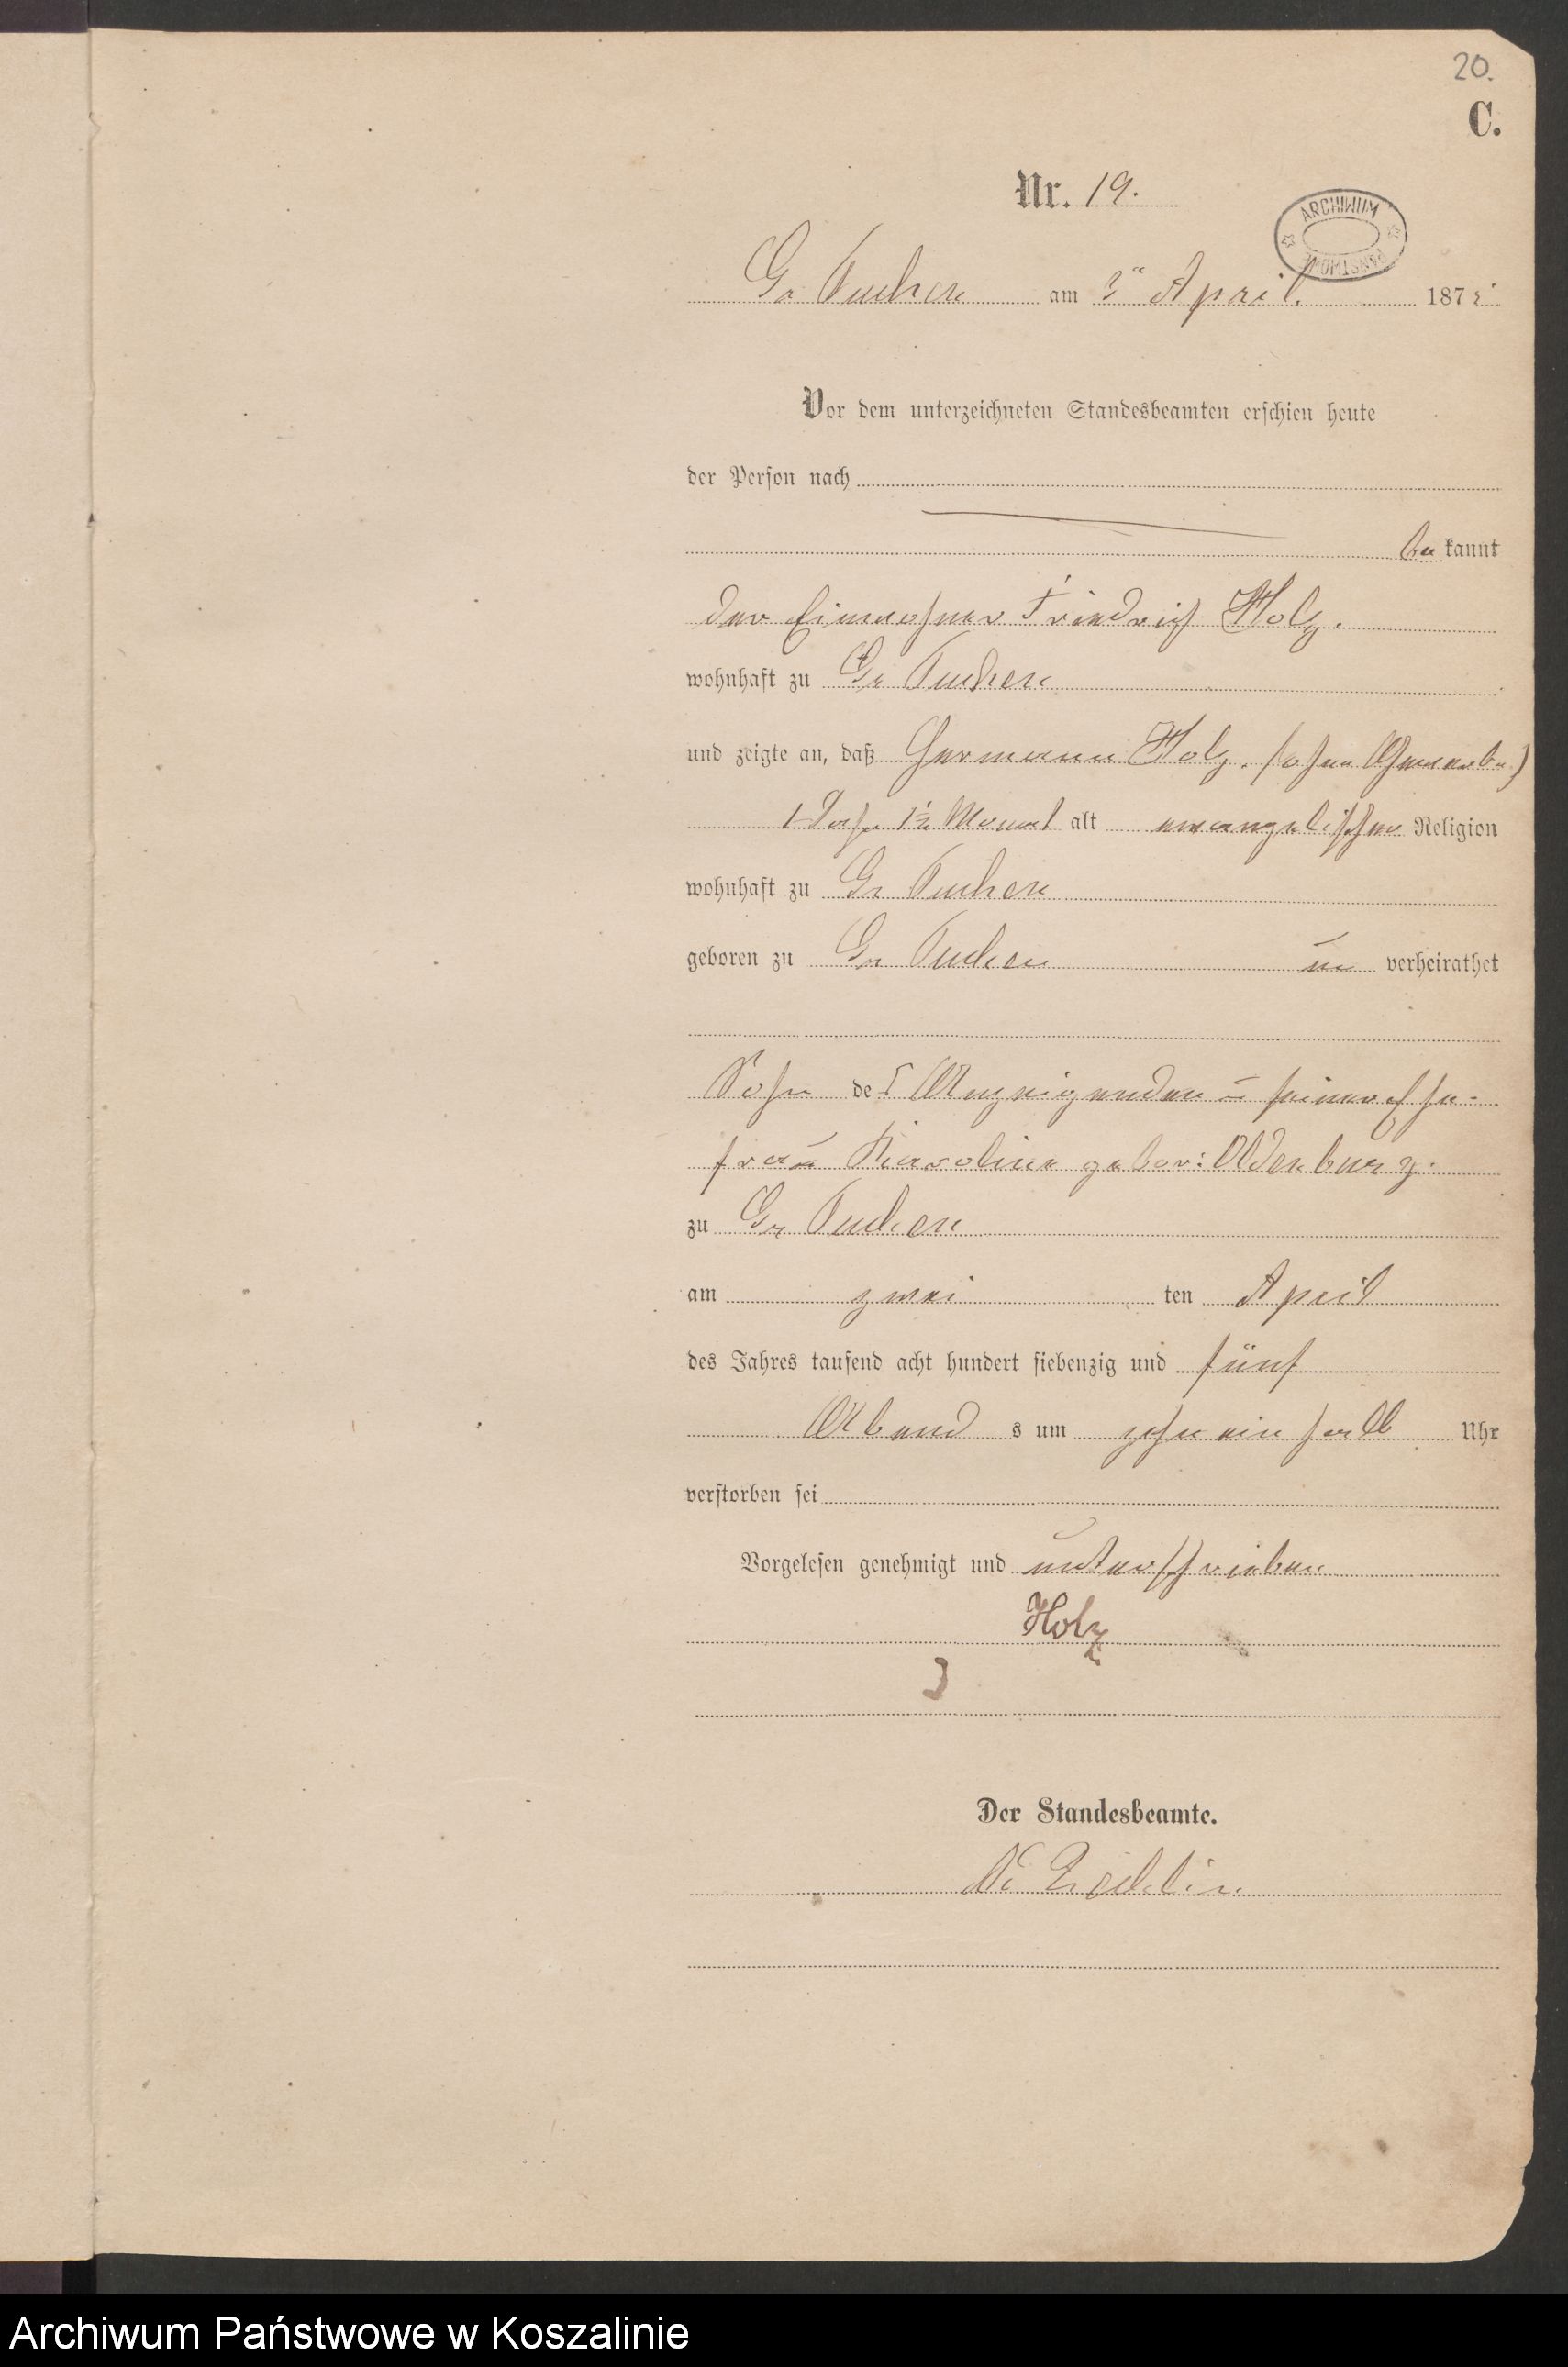 20.
C.
Nr. 19.
ARCHIWUM
PAŃSTWOWE
Gr Tuchen am 3ten April. 1875
Vor dem unterzeichneten Standesbeamten erschien heute
der Person nach
be kannt
der Einwohner Friedrich Holz.
wohnhaft zu Gr Tuchen
und zeigte an, daß Hermann Holz. (ohne Gewerbe)
1 Jahr 1½ Monat alt evangelischer Religion
wohnhaft zu Gr Tuchen
geboren zu Gr Tuchen un verheirathet
Sohn des Anzeigenden u seiner Ehe-
frau Karoline gebor: Oldenburg.
zu Gr Tuchen
am zwei ten April
des Jahres tausend acht hundert siebenzig und fünf
Abend s um zehn ein halb Uhr
verstorben sei
Vorgelesen genehmigt und unterschrieben
Holz
Der Standesbeamte.
Archiwum Państwowe w Koszalinie